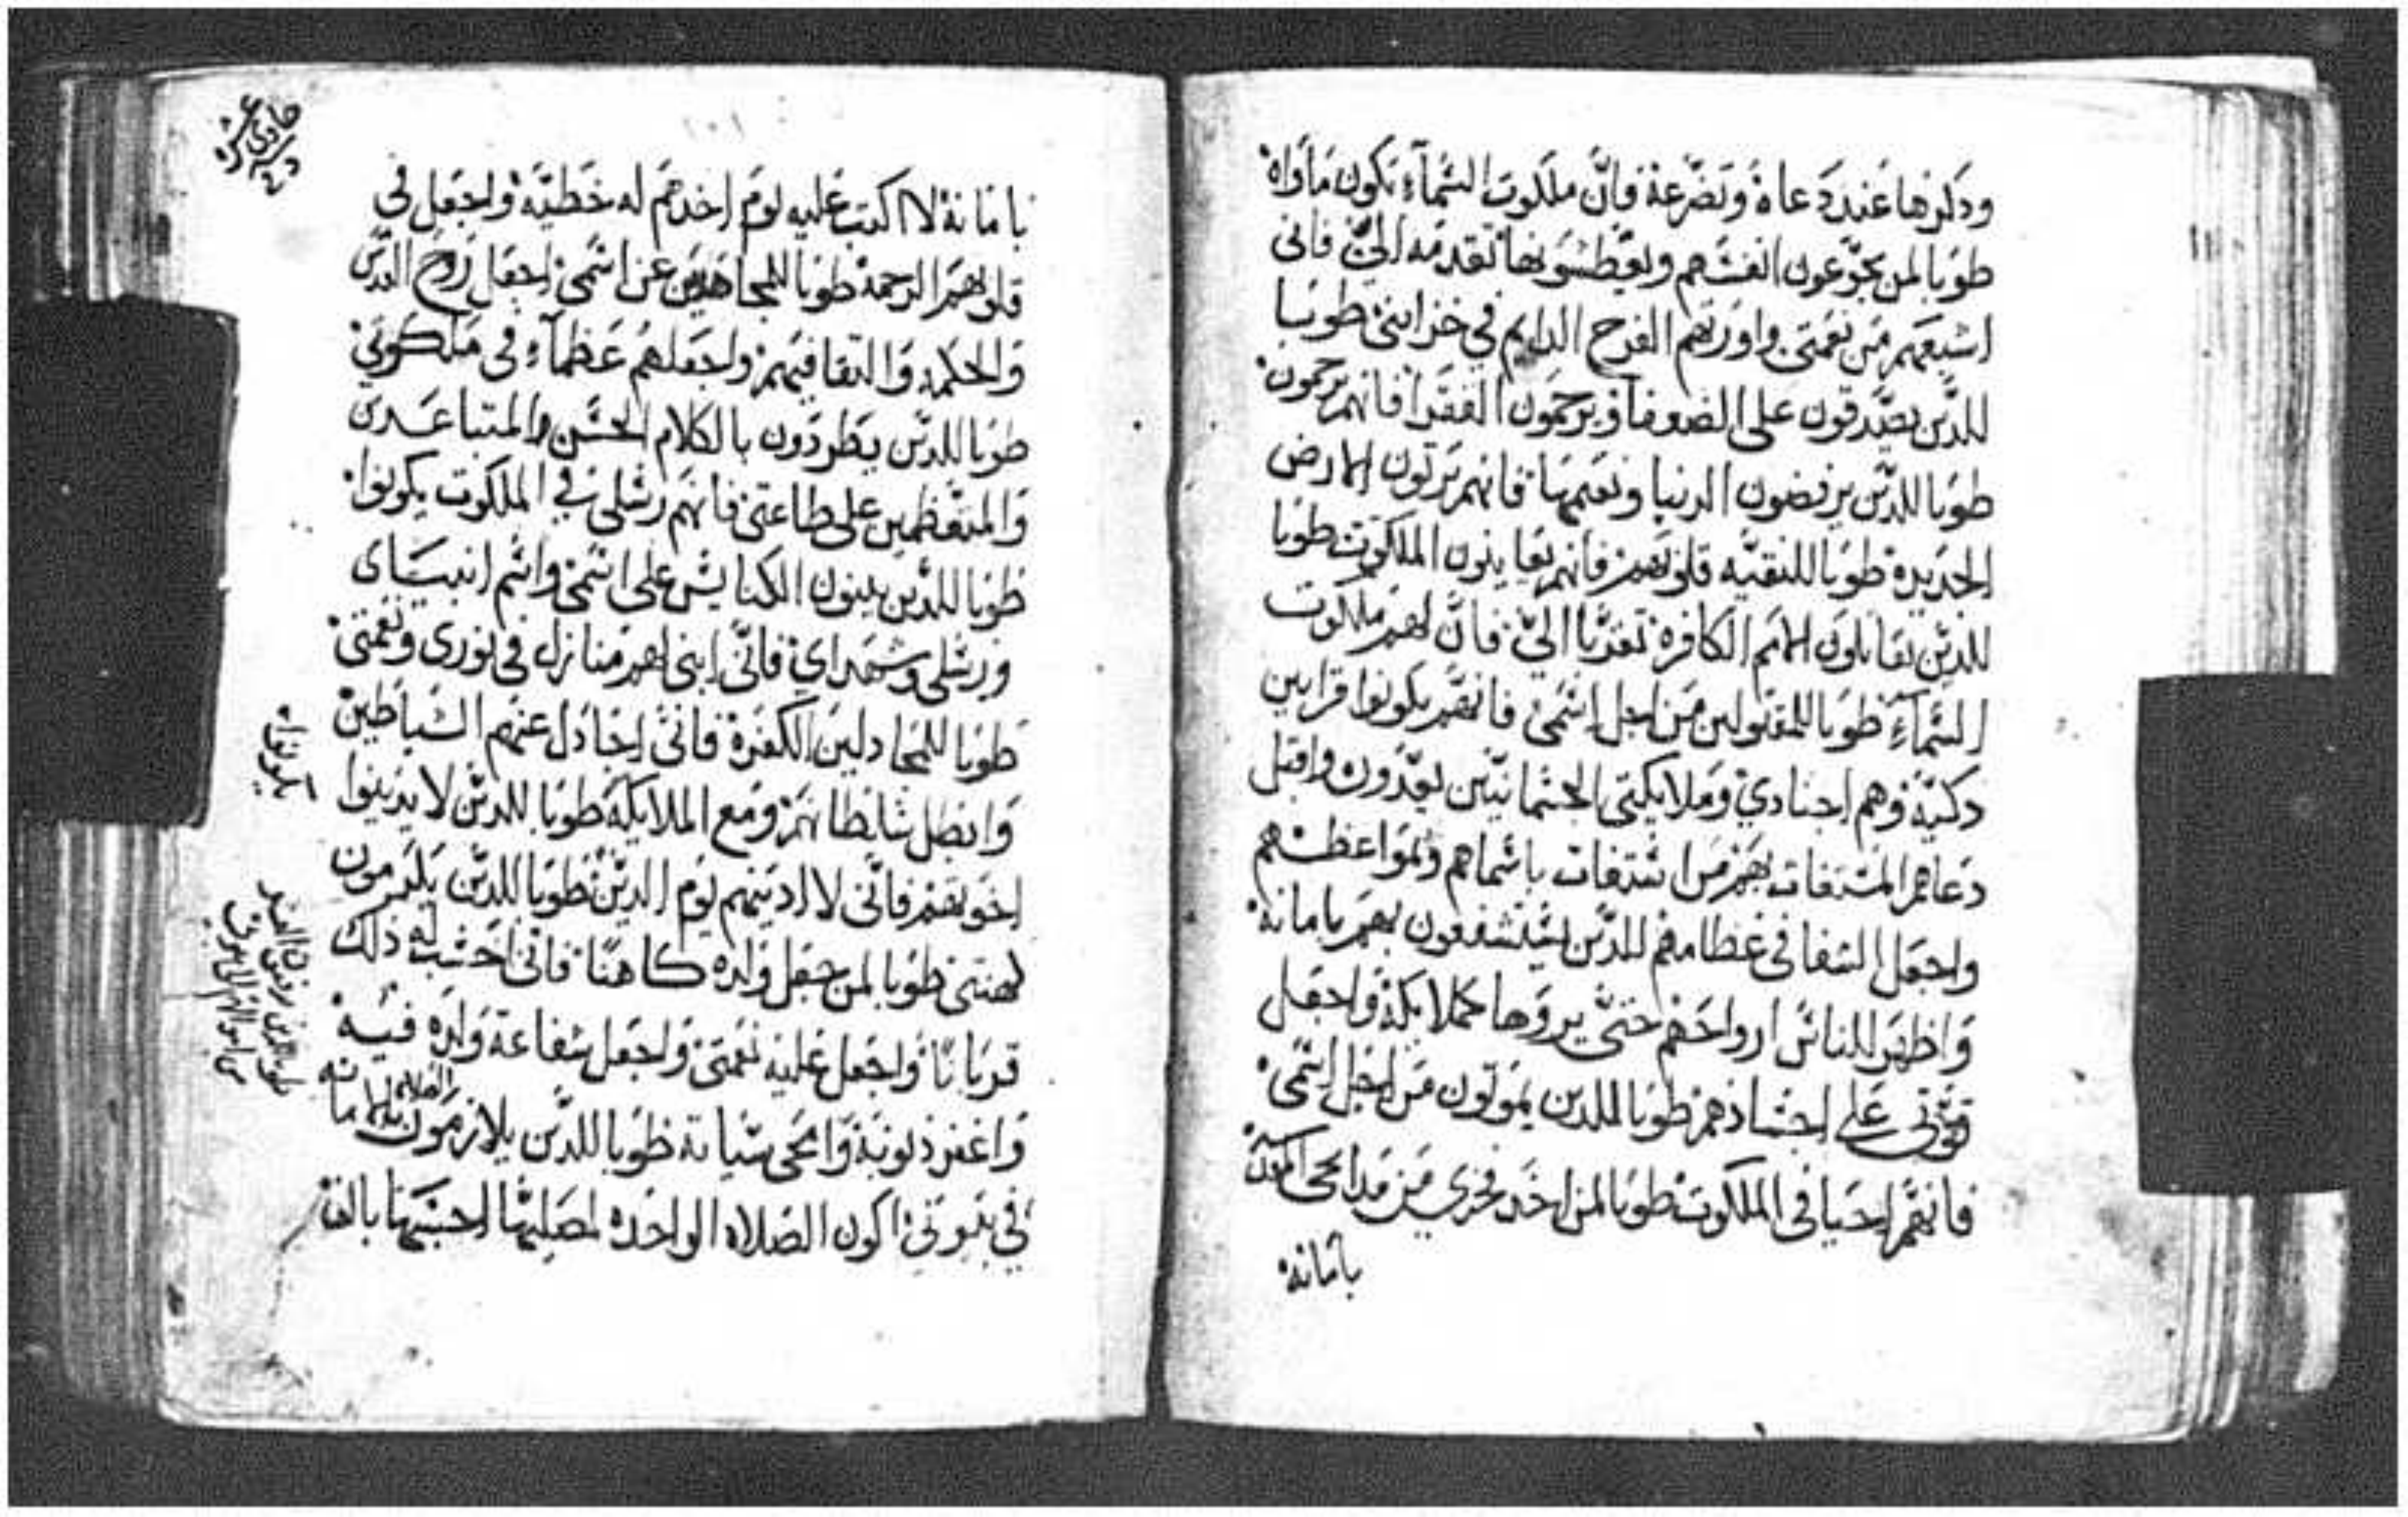 ودكرها عند دعاة وتضرعة فانّ ملكوت السمآء تكون مأواة
طوبا لمن يجوّعون انفسهم ويعطشونها تقدمه اليّ فانى
اشبعهم من نعمتى واورثهم الفرح الدايم في خزاينى طوبا
للدّين يصّدقون على الضعفا ويرحمون الفقرا فانهم يرحمون
طوبا للدّين يرفضون الدنيا ونعيمها فانهم يرتون الارض
الجديده طوبا للنقيّه قلوبهم فانهم يعاينون الملكوت طوبا
للدين يقاتلون الامم الكافرة تقرّبا اليّ فانّ لهم ملكوت
السمآء طوبا للمقتولين من اجل اسمى فانهم يكونوا قرابين
دكيّة وهم اجنادي وملايكتى الجسمانيّين يعدّون واقبل
دعاهم المستغات بهم من استغات باسماهم ولمواعظهم
واجعل الشفا في عظامهم للدّين يستشفعون بهم بامانة
واظهر للناس ارواحهم حتىّ يروها كملايكة واجعل
قوتى على اجسادهم طوبا للدين يموتون من اجل اسمى
فانهم احيا في الملكوت طوبا لمن اخد فخرى من مدايحى المكتبه
بامانة
بامانة لا اكتب عليه يوم اخدهم له خطيّة واجعل في
قلوبهم الرحمة طوبا للمجاهدين عن اسمى اجعل روح القدس
والحكمه والتقا فيهم واجعلهم عظمآء في ملكوتي
طوبا للدّين يطردون بالكلام الخشن والمتباعدين
والمتعظمين على طاعتى فانهم رسلى في الملكوت يكونوا
طوبا للدّين يبنون الكنايس على اسمى واسم انبيياى
ورسلى وشهداي فانّى ابنى لهم منازل في نورى ونعمتى
طوبا للمجادلين الكفرة فانىّ اجادل عنهم الشياطين
وابطل سلطانهم ومع الملايكة طوبا للدين لا يدينوا
اخوتهم فانّى لا ادينهم يوم الدين طوبا للدّين يكرمون
كهنتى طوبا لمن جعل ولده كاهنًا فانى احسب له ذلك
قربانًا واجعل عليه نعمتى واجعل شفاعة ولده فيه
واغفر ذنوبة وامحى سياته طوبا للدّين يلازمون الصلاه بامانه
في بيوتي اكون الصلاه الواحده لمصليها احسبها بالف
حادى عشر
يكونوا